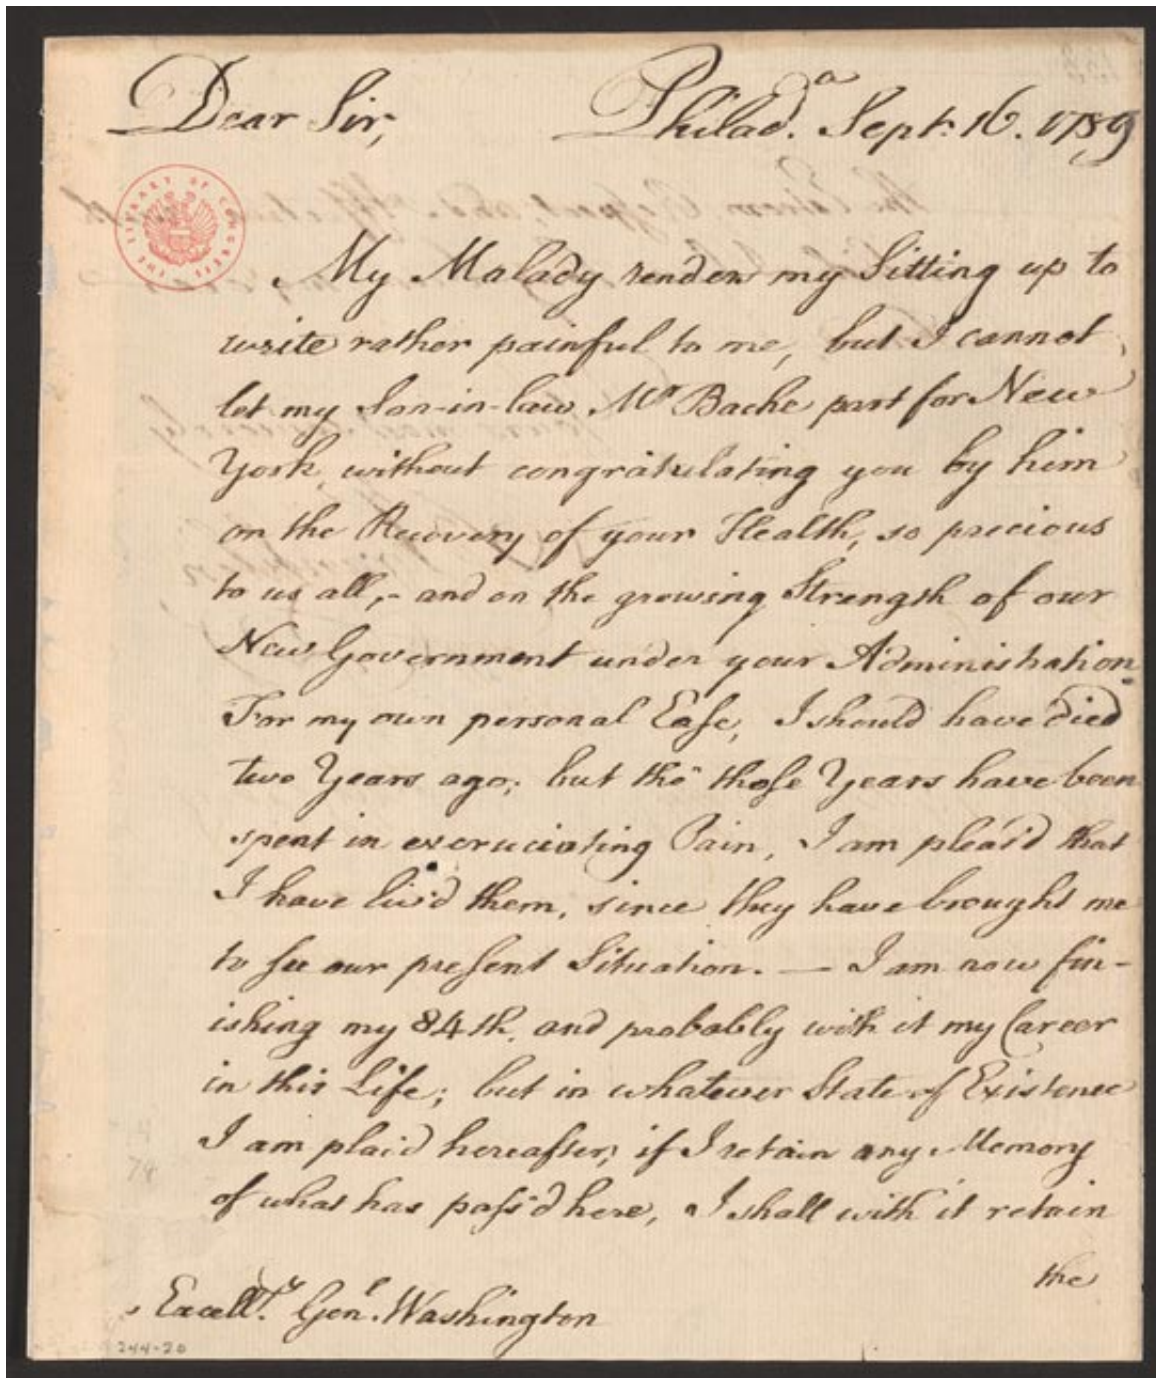 Dear Sir,  Philad.a Sept. 16. 1789
THE LIBRARY OF CONGRESS
My Malady renders my Sitting up to
write rather painful to me, but I cannot
let my Son-in-law Mr Bache part for New
York, without congratulating you by him
on the Recovery of your Health, so precious
to us all,- and on the growing Strength of our
New Government under your Administration.
For my own personal Ease, I should have died
two Years ago; but tho' those Years have been
spent in excruciating Pain, I am pleas'd that
I have liv'd them, since they have brought me
to see our present Situation. — I am now fin-
ishing my 84th. and probably with it my Career
in this Life; but in whatever State of Existence
I am plac'd hereafter, if I retain any Memory
of what has pass'd here, I shall with it retain
the
Excelly. Genl. Washington
244-20